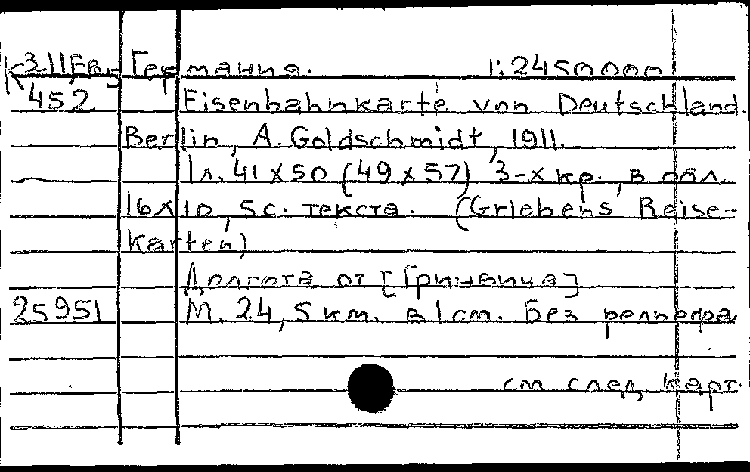 К 3-11, Ев. Германия. 1:2450000
452 Eisenbahnkarte von Deutschland.
Berlin, A. Goldschmidt, 1911.
1 л. 41 x 50 (49 x 57) 3-х кр., в обл.
16 x 10, 5 с. текста. (Griebens Reise-
karten)
Долгота от [Гринвича]
25951 М. 24,5 км. в 1 см. Без рельефа
см след. карт.